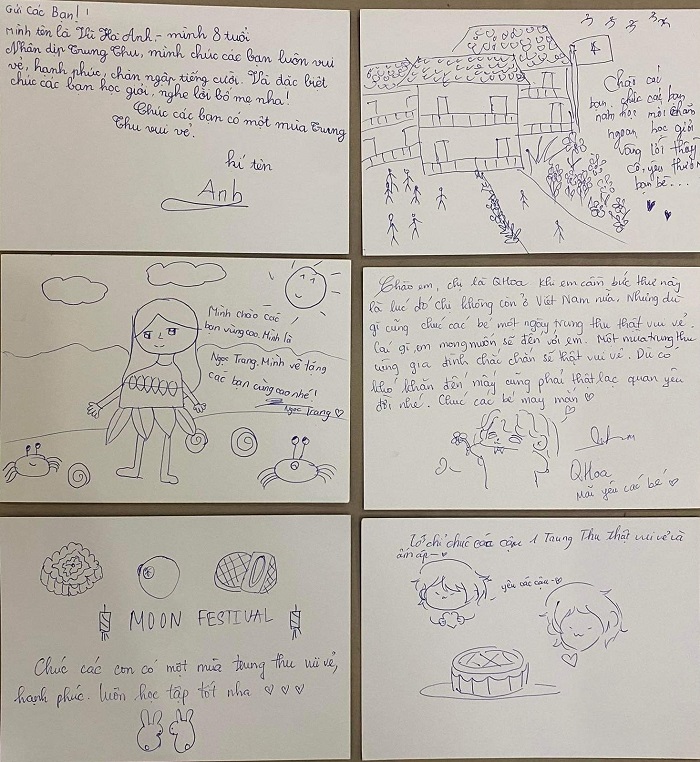 Gửi Các Bạn!!
Mình tên là Vũ Hà Anh - mình 8 tuổi
Nhân dịp Trung Thu, mình chúc các bạn luôn vui
vẻ, hạnh phúc, chàn ngập tiếng cười. Và đặc biệt
chúc các bạn học giỏi, nghe lời bố mẹ nha!
Chúc các bạn có một mùa Trung
Thu vui vẻ.
kí tên
Anh
Chào các
bạn, chúc các bạn
năm học mới chăm
ngoan học giỏi
vâng lời thầy
cô, yêu thương
bạn bè...
Mình chào các
bạn vùng cao. Mình là
Ngọc Trang. Mình vẽ tặng
các bạn vùng cao nhé!
Ngọc Trang
Chào em, chị là QHoa khi em cầm bức thư này
là lúc đó chị không còn ở Việt Nam nữa. Nhưng dù
gì cũng chúc các bé một ngày trung thu thật vui vẻ.
Cái gì em mong muốn sẽ đến với em. Một mùa trung thu
cùng gia đình chắc chắn sẽ thật vui vẻ. Dù có
khó khăn đến mấy cũng phải thật lạc quan yêu
đời nhé. Chúc các bé may mắn
QHoa
mãi yêu các bé
MOON FESTIVAL
Chúc các con có một mùa trung thu vui vẻ,
hạnh phúc. luôn học tập tốt nha
Tớ chỉ chúc các cậu 1 Trung Thu thật vui vẻ và
ấm áp
yêu các cậu